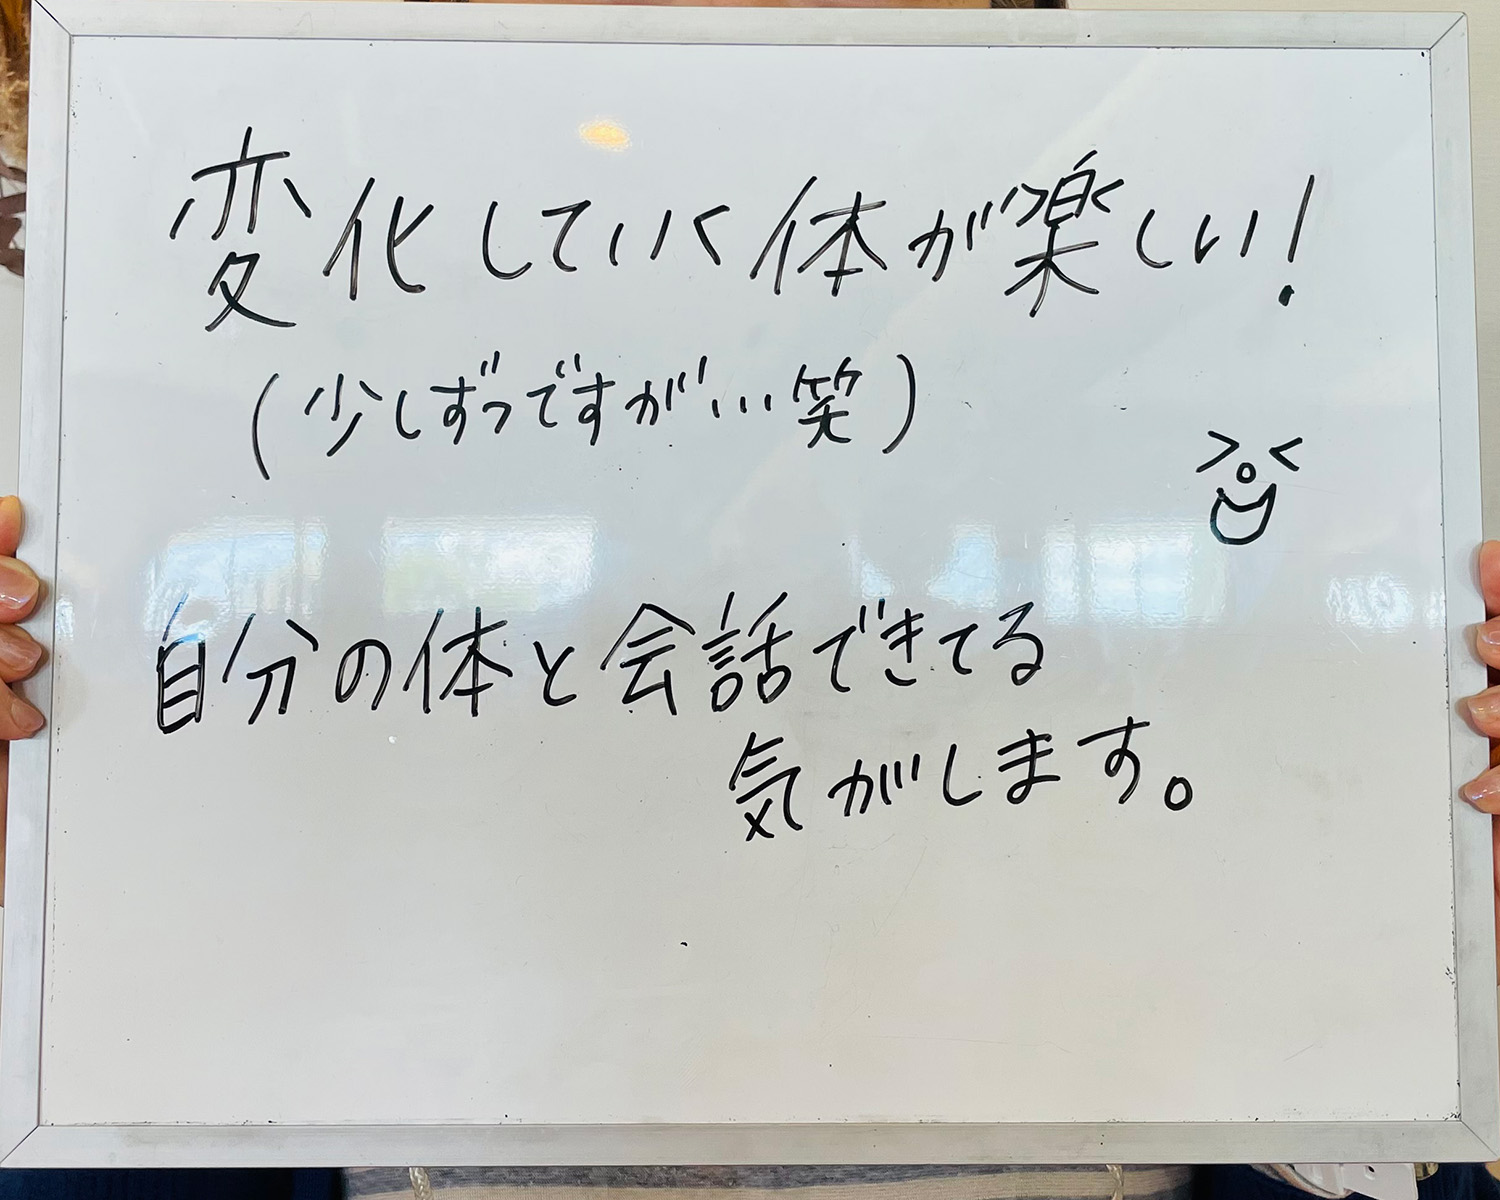 変化していく体が楽しい!
(少しずつですが…笑)
自分の体と会話できてる
気がします。